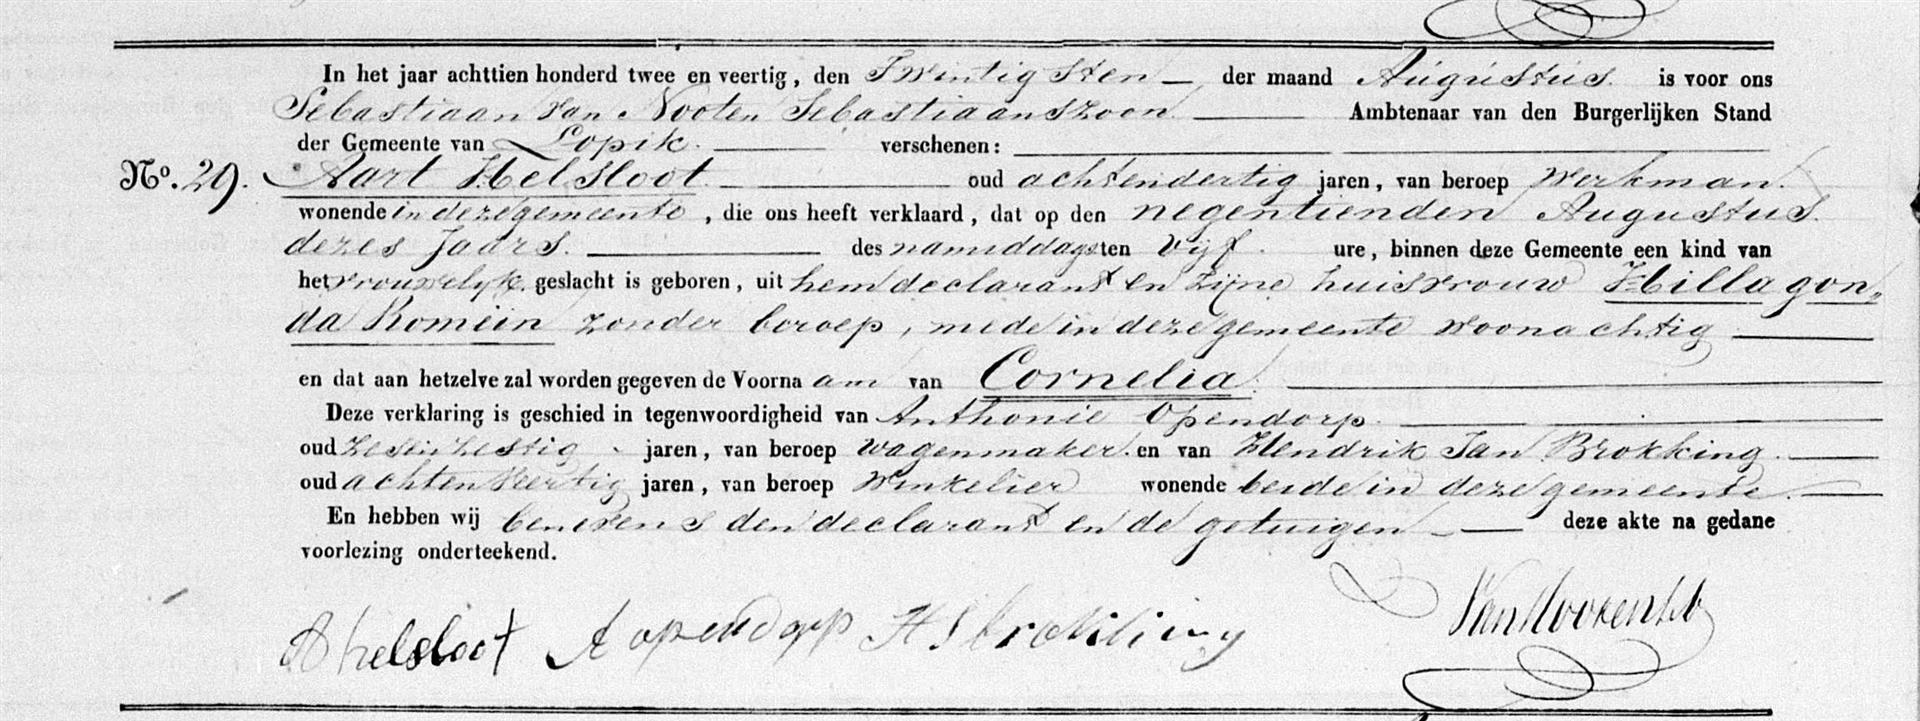 In het jaar achttien honderd twee en veertig, den Twintigsten der maand Augustus is voor ons
Sebastiaan van Nooten Sebastiaanszoon Ambtenaar van den Burgerlijken Stand
der Gemeente van Lopik. verschenen:
No. 29. Aart Helsloot oud achtendertig jaren, van beroep Werkman.
wonende in deze gemeente, die ons heeft verklaard, dat op den negentienden Augustus
dezes Jaars. des namiddags ten vijf ure, binnen deze Gemeente een kind van
het vrouwelyk geslacht is geboren, uit hem declarant en zijne huisvrouw Hillagon„
da Romein zonder beroep, mede in deze gemeente woonachtig
en dat aan hetzelve zal worden gegeven de Voorna am van Cornelia.
Deze verklaring is geschied in tegenwoordigheid van Anthonie Opendorp.
oud zesenzestig jaren, van beroep wagenmaker. en van Hendrik Jan Brokking.
oud achtenveertig jaren, van beroep Winkelier wonende beide in deze gemeente.
En hebben wij benevens den declarant en de getuigen deze akte na gedane
voorlezing onderteekend.
A helsloot A opendorp H J brokking